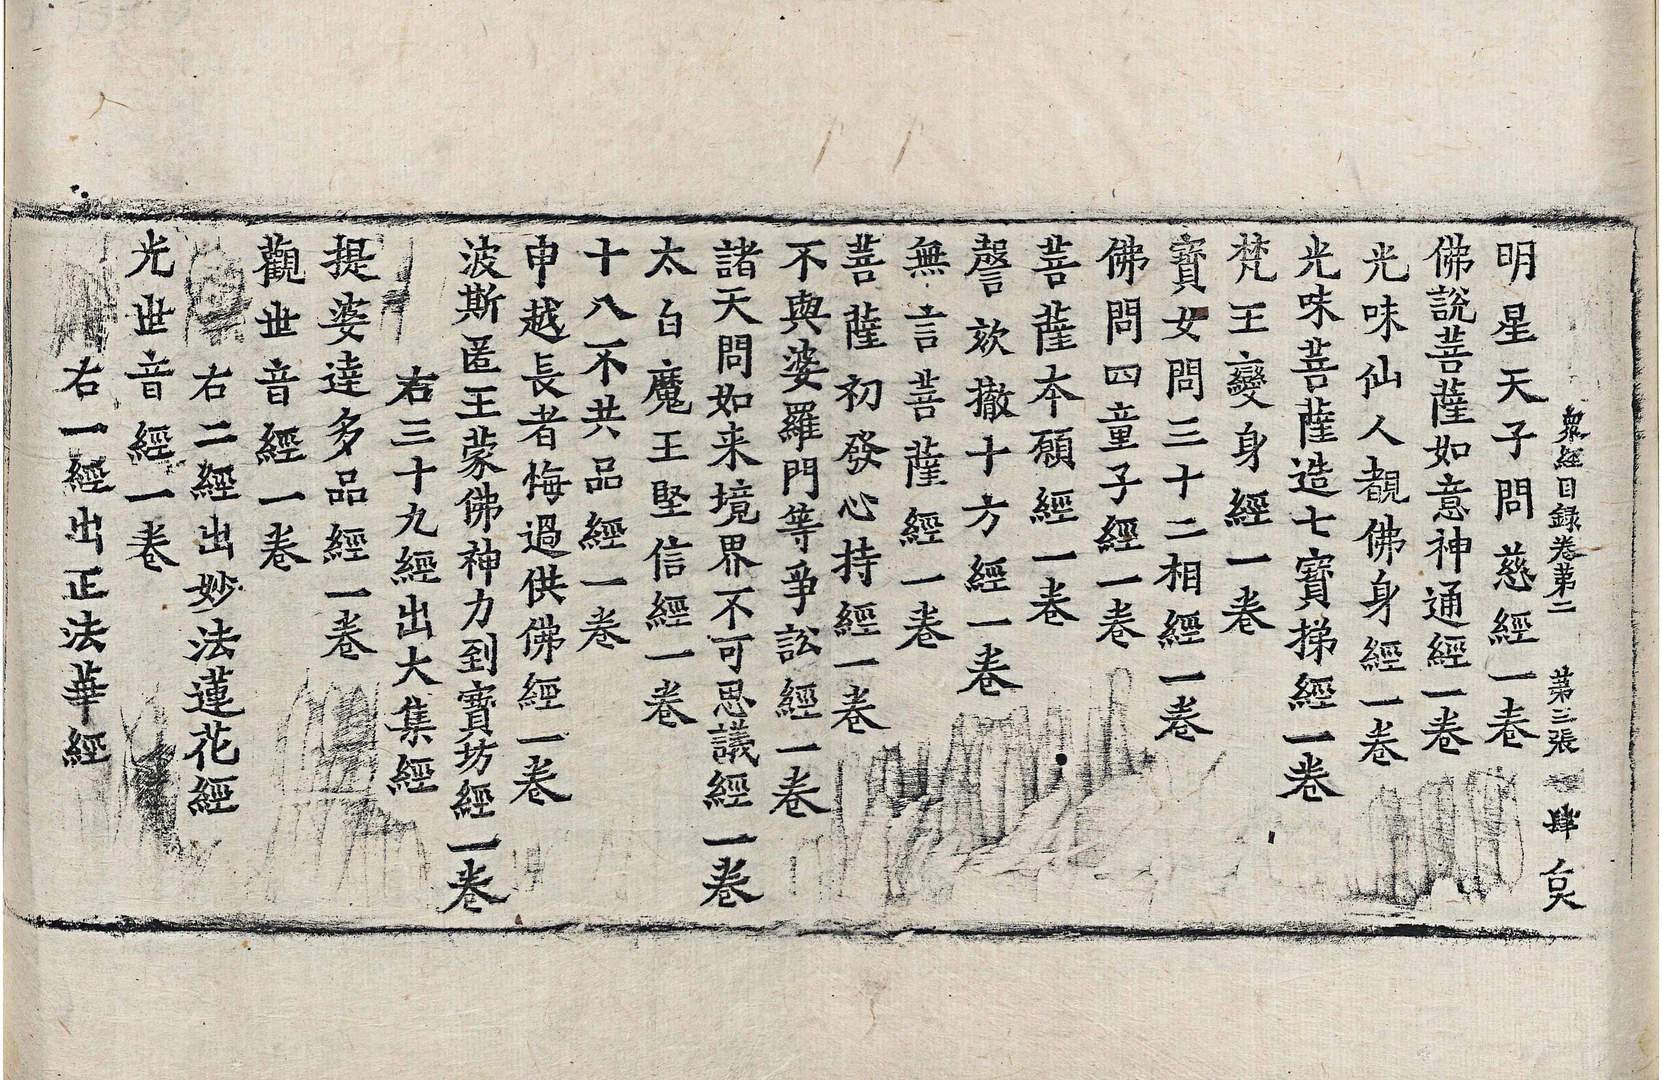 衆經目録卷第二　第三張　肆　㚖
明星天子問慈經一卷
佛說菩薩如意神通經一卷
光味仙人覩佛身經一卷
光味菩薩造七寶梯經一卷
梵王變身經一卷
寳女問三十二相經一卷
佛問四童子經一卷
菩薩本願經一卷
謦欬撤十方經一卷
無言菩薩經一卷
菩薩初發心持經一卷
不與婆羅門等爭訟經一卷
諸天問如来境界不可思議經一卷
太白魔王堅信經一卷
十八不共品經一卷
申越長者悔過供佛經一卷
波斯匿王蒙佛神力到寶坊經一卷
右三十九經出大集經
提婆達多品經一卷
觀世音經一卷
右二經出妙法蓮花經
光世音經一卷
右一經出正法華經